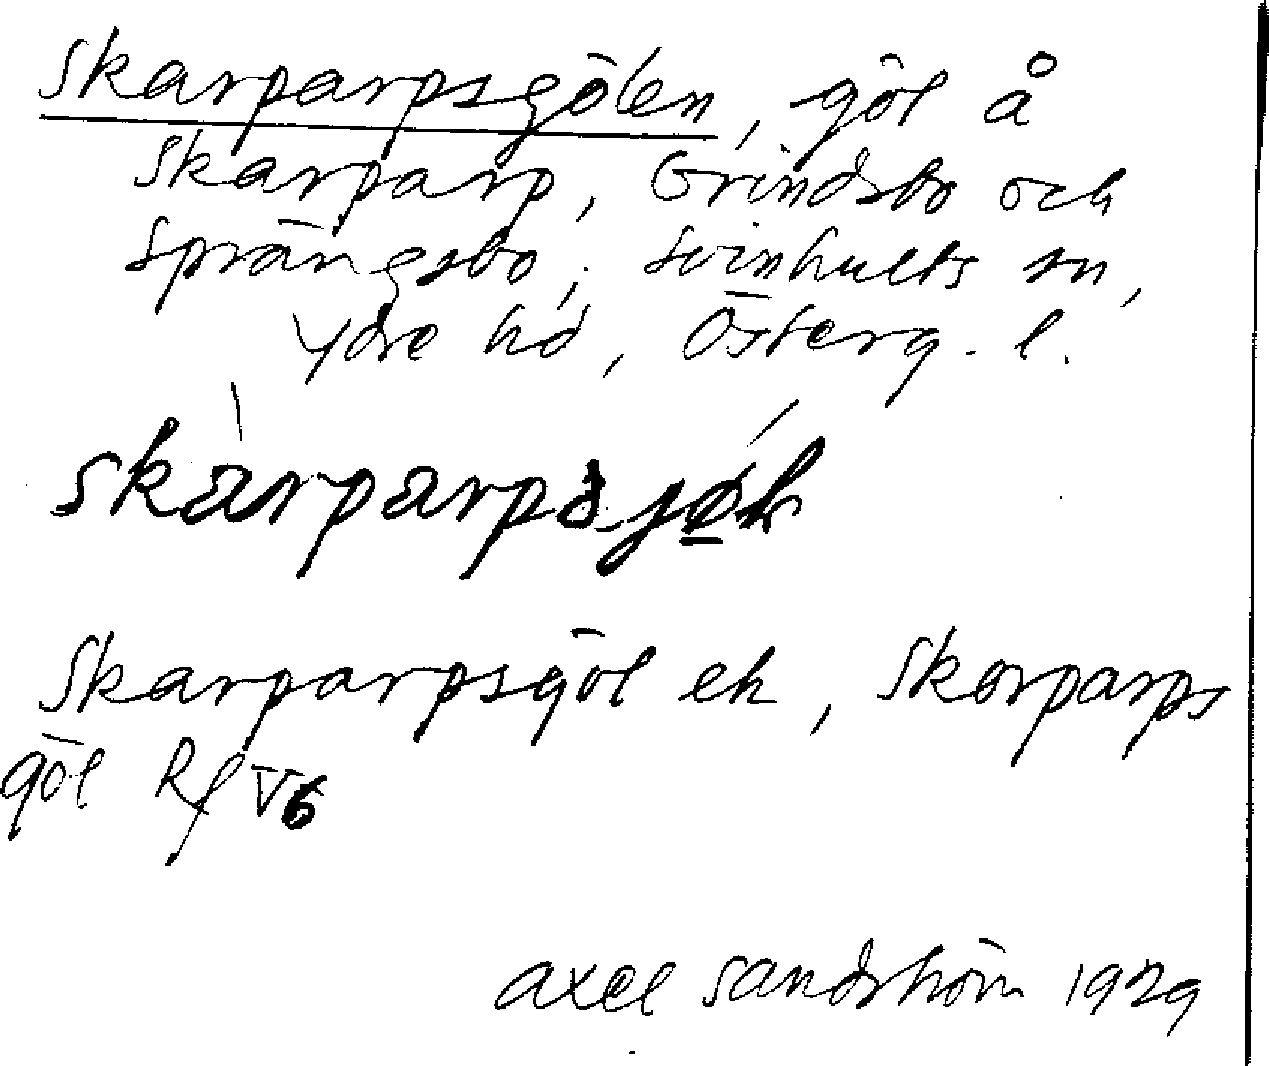 Skarparpsgölen, göl å
Skarparp, Grindsbo och
Sprängsbo, Svinhults sn,
Ydre hd, Österg. l.
Skarparpsgöl ek, Skorparps
göl Rf V6
Axel Sandström 1929